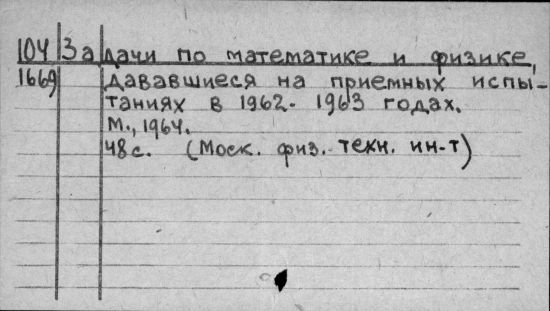 104 Задачи по математике и физике,
1669 дававшиеся на приемных испы-
таниях в 1962-1963 годах.
М., 1964.
48с. (Моск. физ. техн. ин-т)